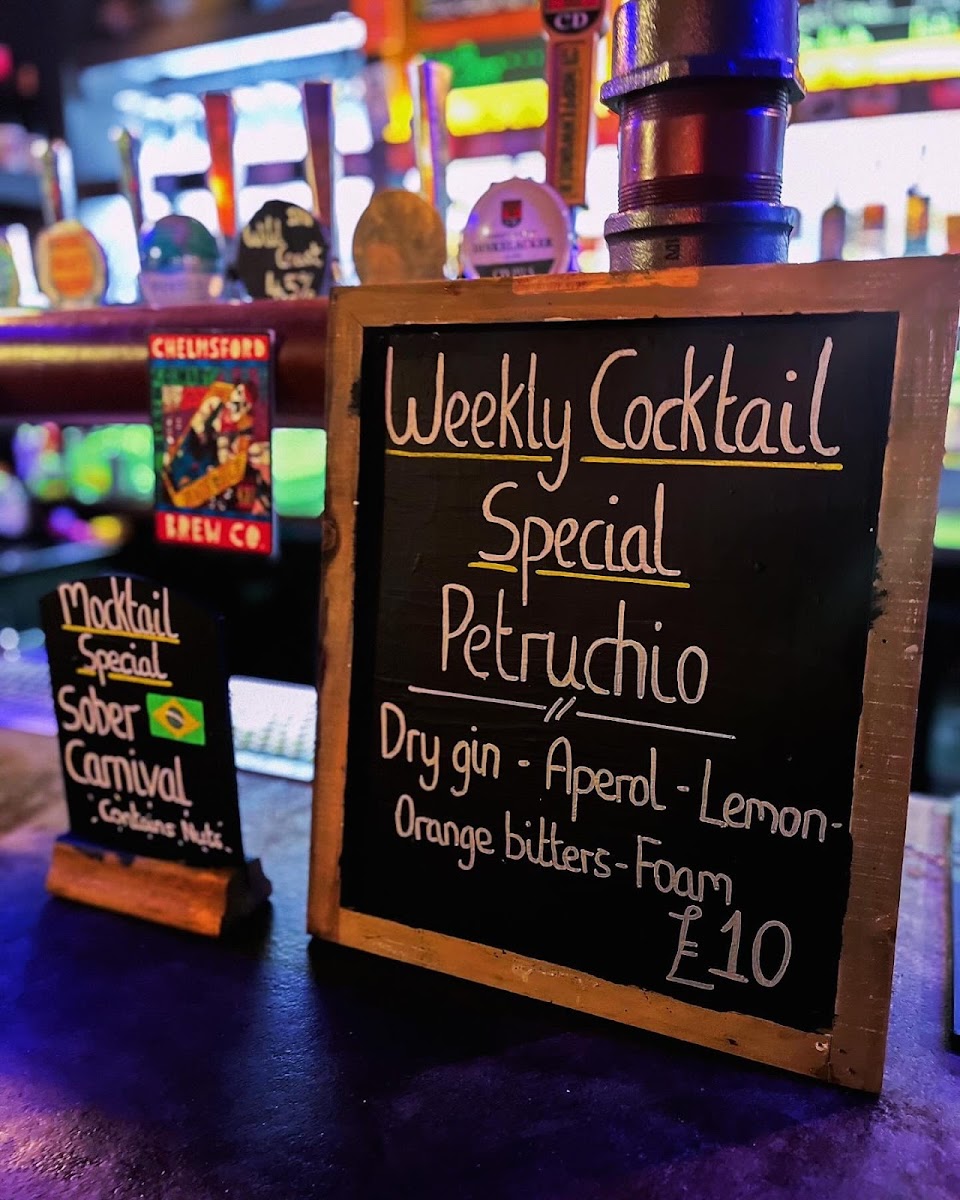 Weekly Cocktail
Special
Petruchio
Dry gin - Aperol - Lemon-
Orange bitters - Foam
£10
Mocktail
Special
Sober
Carnival
Contains Nuts
CHELMSFORD
BREW CO.
Wild
Coast
4.5%
DINKELACKER
CD